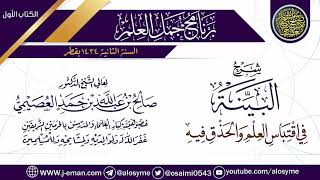 الكتاب الأول
برنامج جمل العلم
السنة الثانية ١٤٣٤ بقطر
شرح
البينة
في اقتباس العلم والحذق فيه
لمعالي الشيخ الدكتور
صالح بن عبد الله بن حمد العصيمي
عضو هيئة كبار العلماء والمدرس بالحرمين الشريفين
غفر الله له ولوالديه ولمشايخه وللمسلمين
www.j-eman.com
/alosyme
@osaimi0543
youtube.com/alosyme